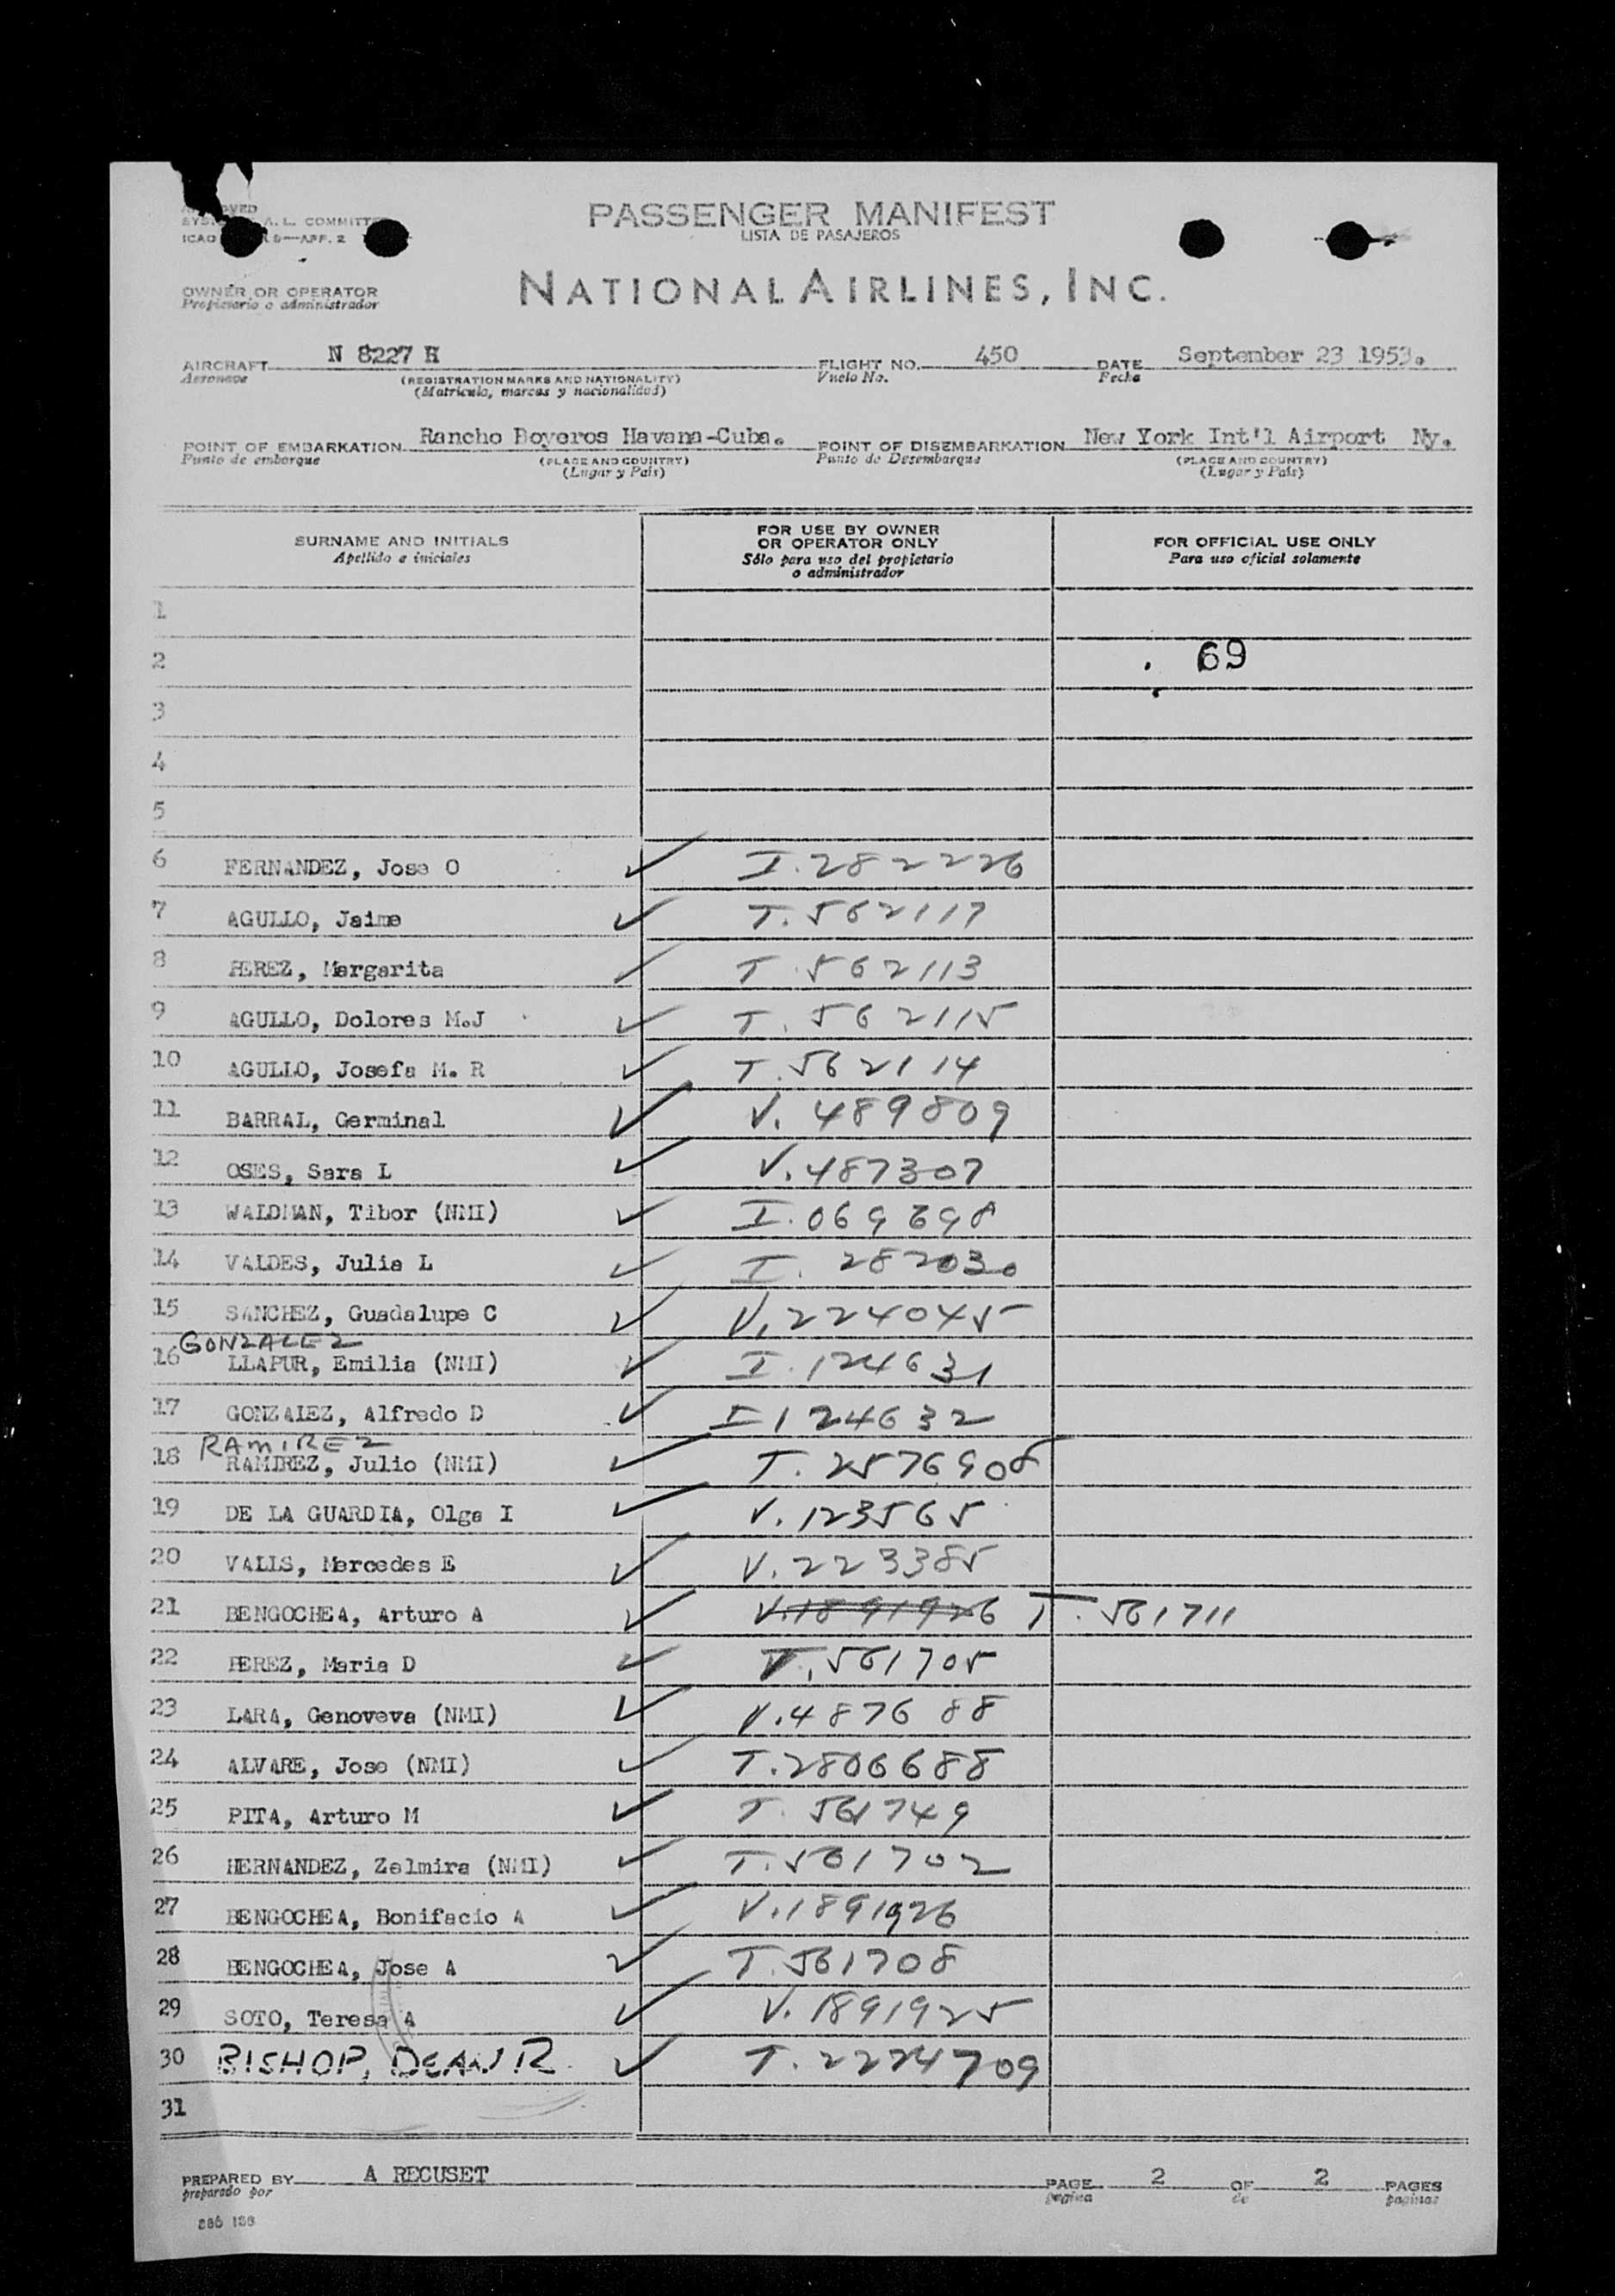 PASSENGER MANIFEST
LISTA DE PASAJEROS
A. L. COMMITTEE
ICAO
APP. 2
OWNER OR OPERATOR
Propietario o administrador
NATIONAL AIRLINES, INC.
AIRCRAFT N 8227 H FLIGHT NO. 450 DATE September 23 1953.
Aeronave (REGISTRATION MARKS AND NATIONALITY) Vuelo No. Fecha
(Matricula, marcas y nacionalidad)
POINT OF EMBARKATION Rancho Boyeros Havana-Cuba. POINT OF DISEMBARKATION New York Int'l Airport Ny.
Punto de embarque (PLACE AND COUNTRY) Punto de Desembarque (PLACE AND COUNTRY)
(Lugar y País) (Lugar y País)
SURNAME AND INITIALS
Apellido e iniciales
FOR USE BY OWNER
OR OPERATOR ONLY
Sólo para uso del propietario
o administrador
FOR OFFICIAL USE ONLY
Para uso oficial solamente
1
2 69
3
4
5
6 FERNANDEZ, Jose O I. 282226
7 AGULLO, Jaime T. 562117
8 PEREZ, Margarita T. 562113
9 AGULLO, Dolores M.J T. 562115
10 AGULLO, Josefa M. R T. 562114
11 BARRAL, Germinal V. 489809
12 OSES, Sara L V. 487307
13 WALDMAN, Tibor (NMI) I.
14 VALDES, Julia L I. 282030
15 SANCHEZ, Guadalupe C V. 224045
GONZALEZ
16 LLAPUR, Emilia (NMI) I. 124631
17 GONZALEZ, Alfredo D I 124632
RAMIREZ
18 RAMIREZ, Julio (NMI) T.
19 DE LA GUARDIA, Olga I V. 123565
20 VALLS, Mercedes E V. 223385
21 BENGOCHEA, Arturo A V. 1891926 T. 561711
22 PEREZ, Maria D T. 561705
23 LARA, Genoveva (NMI) V. 487688
24 ALVARE, Jose (NMI) T. 2806688
25 PITA, Arturo M T. 561749
26 HERNANDEZ, Zelmira (NMI) T. 561702
27 BENGOCHEA, Bonifacio A V. 1891926
28 BENGOCHEA, Jose A T. 561708
29 SOTO, Teresa A V. 1891925
30 BISHOP, DEAN R. T. 2224709
31
PREPARED BY A RECUSET PAGE 2 OF 2 PAGES
preparado por pagina de paginas